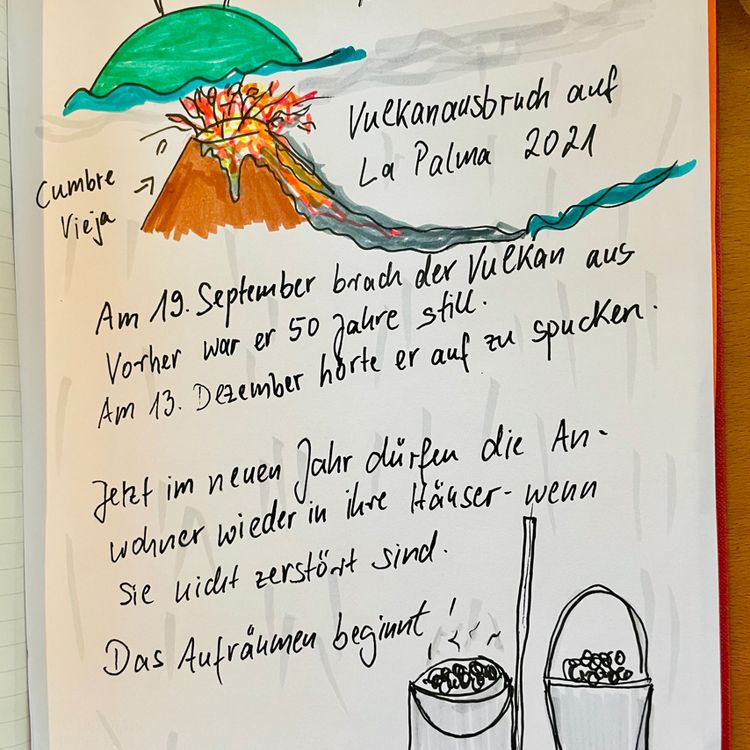 Vulkanausbruch auf
La Palma 2021
Cumbre
Vieja
Am 19. September brach der Vulkan aus
Vorher war er 50 Jahre still.
Am 13. Dezember hörte er auf zu spucken.
Jetzt im neuen Jahr dürfen die An-
wohner wieder in ihre Häuser - wenn
sie nicht zerstört sind.
Das Aufräumen beginnt!